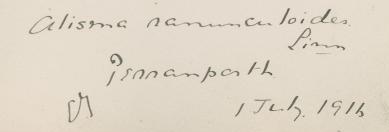 Alisma ranunculoides
Linn
Perranporth
1 July. 1916